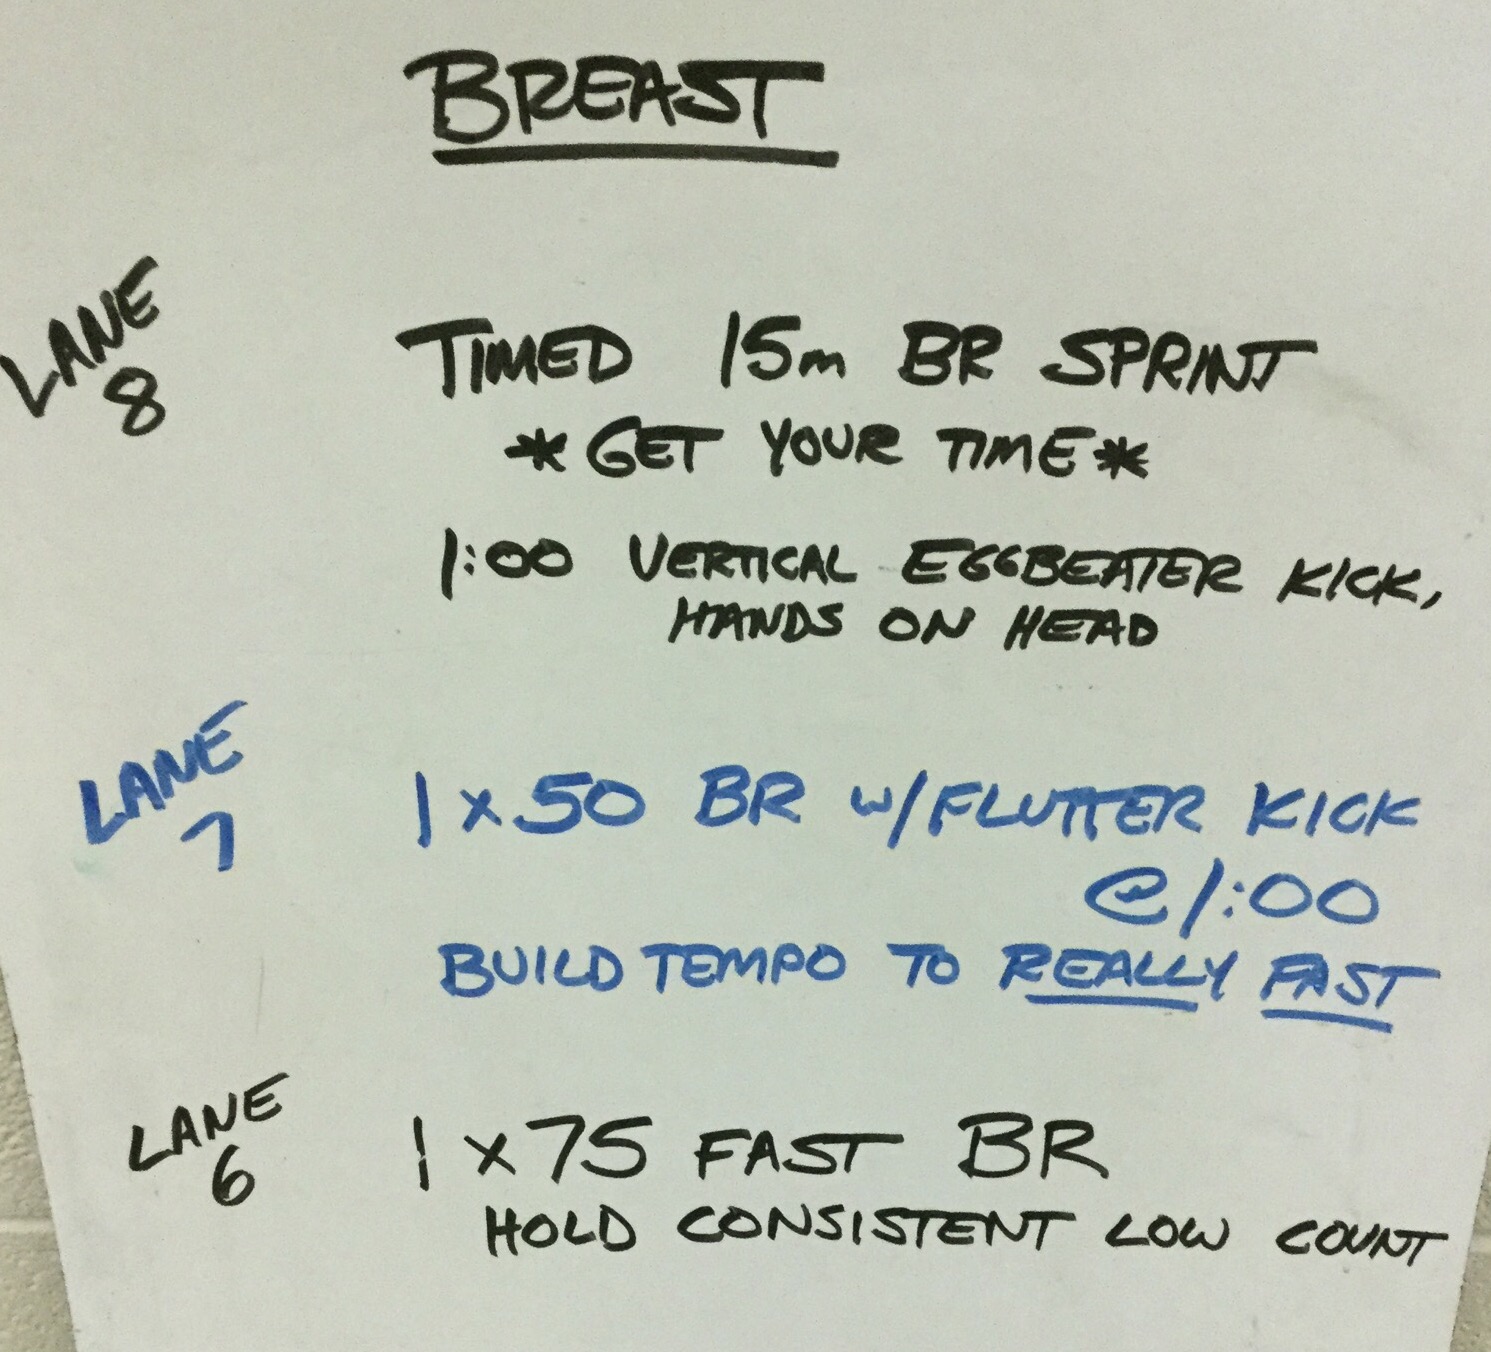 BREAST
LANE
8
TIMED 15m BR SPRINT
*GET YOUR TIME*
1:00 VERTICAL EGGBEATER KICK,
HANDS ON HEAD
LANE
7
1 x 50 BR w/FLUTTER KICK
@ 1:00
BUILD TEMPO TO REALLY FAST
LANE
6
1 x 75 FAST BR
HOLD CONSISTENT LOW COUNT